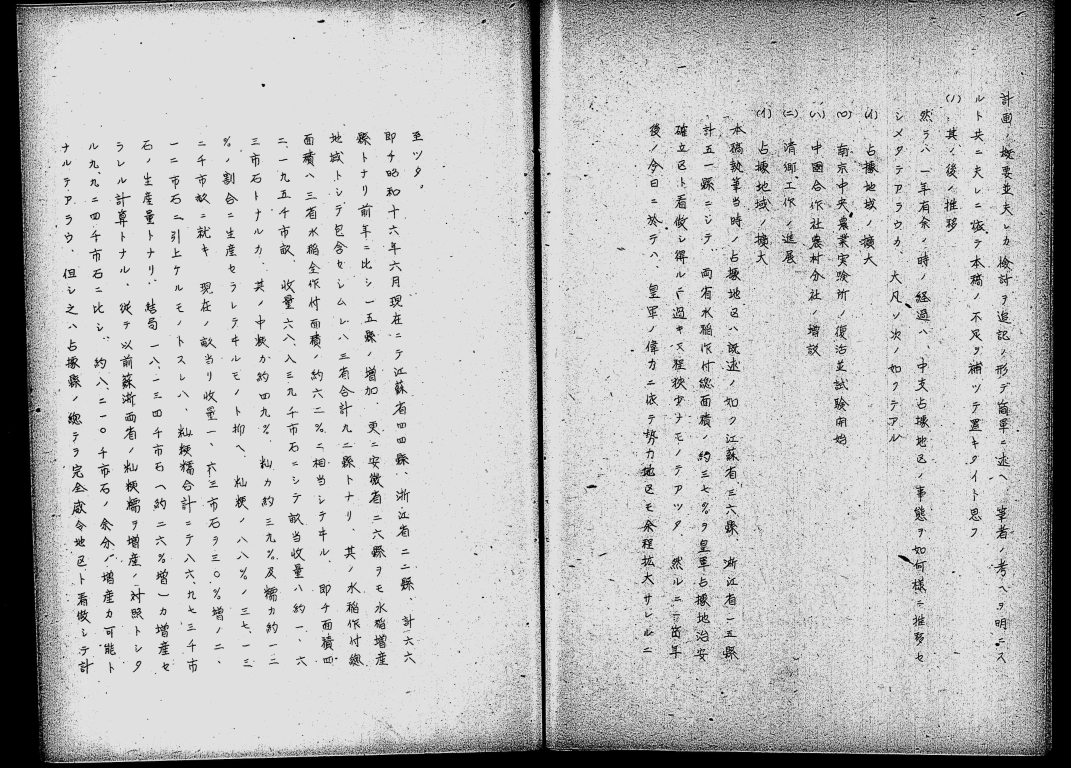 計画ノ概要並夫レカ檢討ヲ追記ノ形デ簡單ニ述ヘ筆者ノ考ヘヲ明ニス
ルト共ニ夫レニ依テ本稿ノ不足ヲ補ツテ置キタイト思フ
(ハ)其ノ後ノ推移
然ラハ一年有余ノ時ノ経過ハ、中支占據地区ノ事態ヲ如何樣ニ推移セ
シメタテアラウカ、大凡ソ次ノ如クテアル
(イ)占據地域ノ擴大
(ロ)南京中央農業実験所ノ復活並試験開始
(ハ)中國合作社農村分社ノ増設
(ニ)清郷工作ノ進展
(イ)占據地域ノ擴大
本稿執筆当時ノ占據地区ハ既述ノ如ク江蘇省三六縣、浙江省一五縣
計五一縣ニシテ、両省水稲作付総面積ノ約三七%ヲ皇軍占據地治安
確立区ト看做シ得ルニ過キス程狭少ナモノテアツタ、然ルニ一箇年
後ノ今日ニ於テハ、皇軍ノ偉力ニ依テ勢力地区モ余程拡大サレルニ
至ツタ。
即チ昭和十六年六月現在ニテ江蘇省四四縣、浙江省二二縣、計六六
縣トナリ前年ニ比シ一五縣ノ増加、更ニ安徽省二六縣ヲモ水稲増産
地域トシテ包含セシムレハ三省合計九二縣トナリ、其ノ水稲作付總
面積ハ三省水稲全作付面積ノ約六二%ニ相当シテヰル、即チ面積四
二、一九五千市畝、收量六八、八三九千市石ニシテ畝当收量ハ約一、六
三市石トナルカ、其ノ中粳カ約四九%、籼カ約三九%及糯カ約一二
%ノ割合ニ生産セラレテヰルモノト抑ヘ、籼粳ノ八八%ノ三七、一三
二千市畝ニ就キ、現在ノ畝当リ收量一、六三市石ヲ三〇%増ノ二、
一二市石ニ引上ケルモノトスレハ、籼粳糯合計ニテ八六、九七三千市
石ノ生産量トナリ、結局一八、一三四千市石(約二六%増)カ増産セ
ラレル計算トナル、從テ以前蘇浙両省ノ籼粳糯ヲ増産ノ対照トシタ
ル九、九二四千市石ニ比シ、約八、二一〇千市石ノ余分ノ増産カ可能ト
ナルテアラウ、但シ之ハ占據縣ノ總テヲ完全威令地区ト看做シテ計